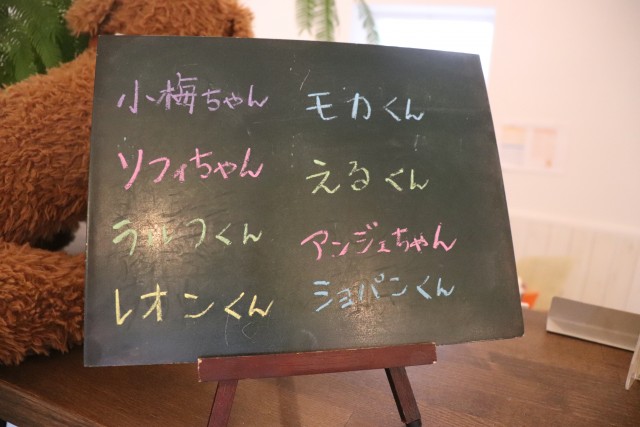 小梅ちゃん
モカくん
ソフィちゃん
えるくん
ラルフくん
アンジェちゃん
レオンくん
ショパンくん